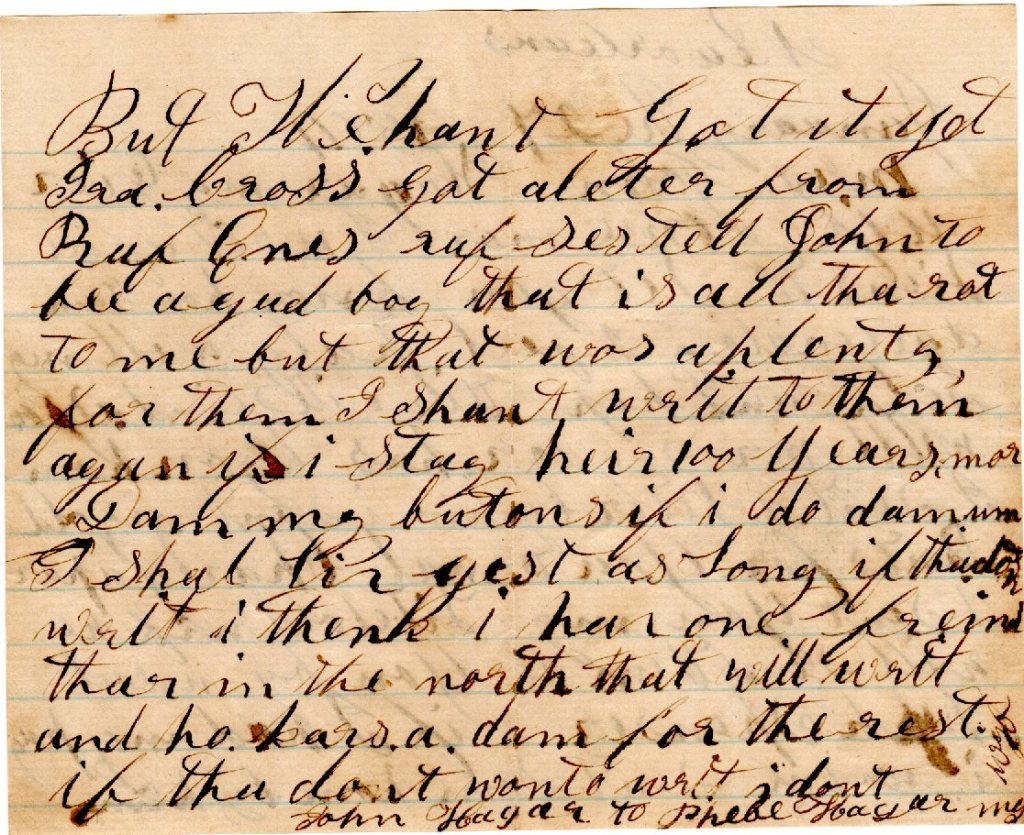 But I hant Got it yet
Ira. Cross got a leter from
Raf Ones raf ses tell John to
bee a gud boy that is all tha rot
to me but that was a plenty
for them I shant writ to them
agan if i stay heir 100 years mor
Dam my butons if i do dam um
I shal liv gest as long if tha don
writ i thenk i hav one freind
thar in the north that will writ
and ho. kars. a. dam for the rest.
if tha dont wonto writ i dont
John Hagar to Phebe Hagar my